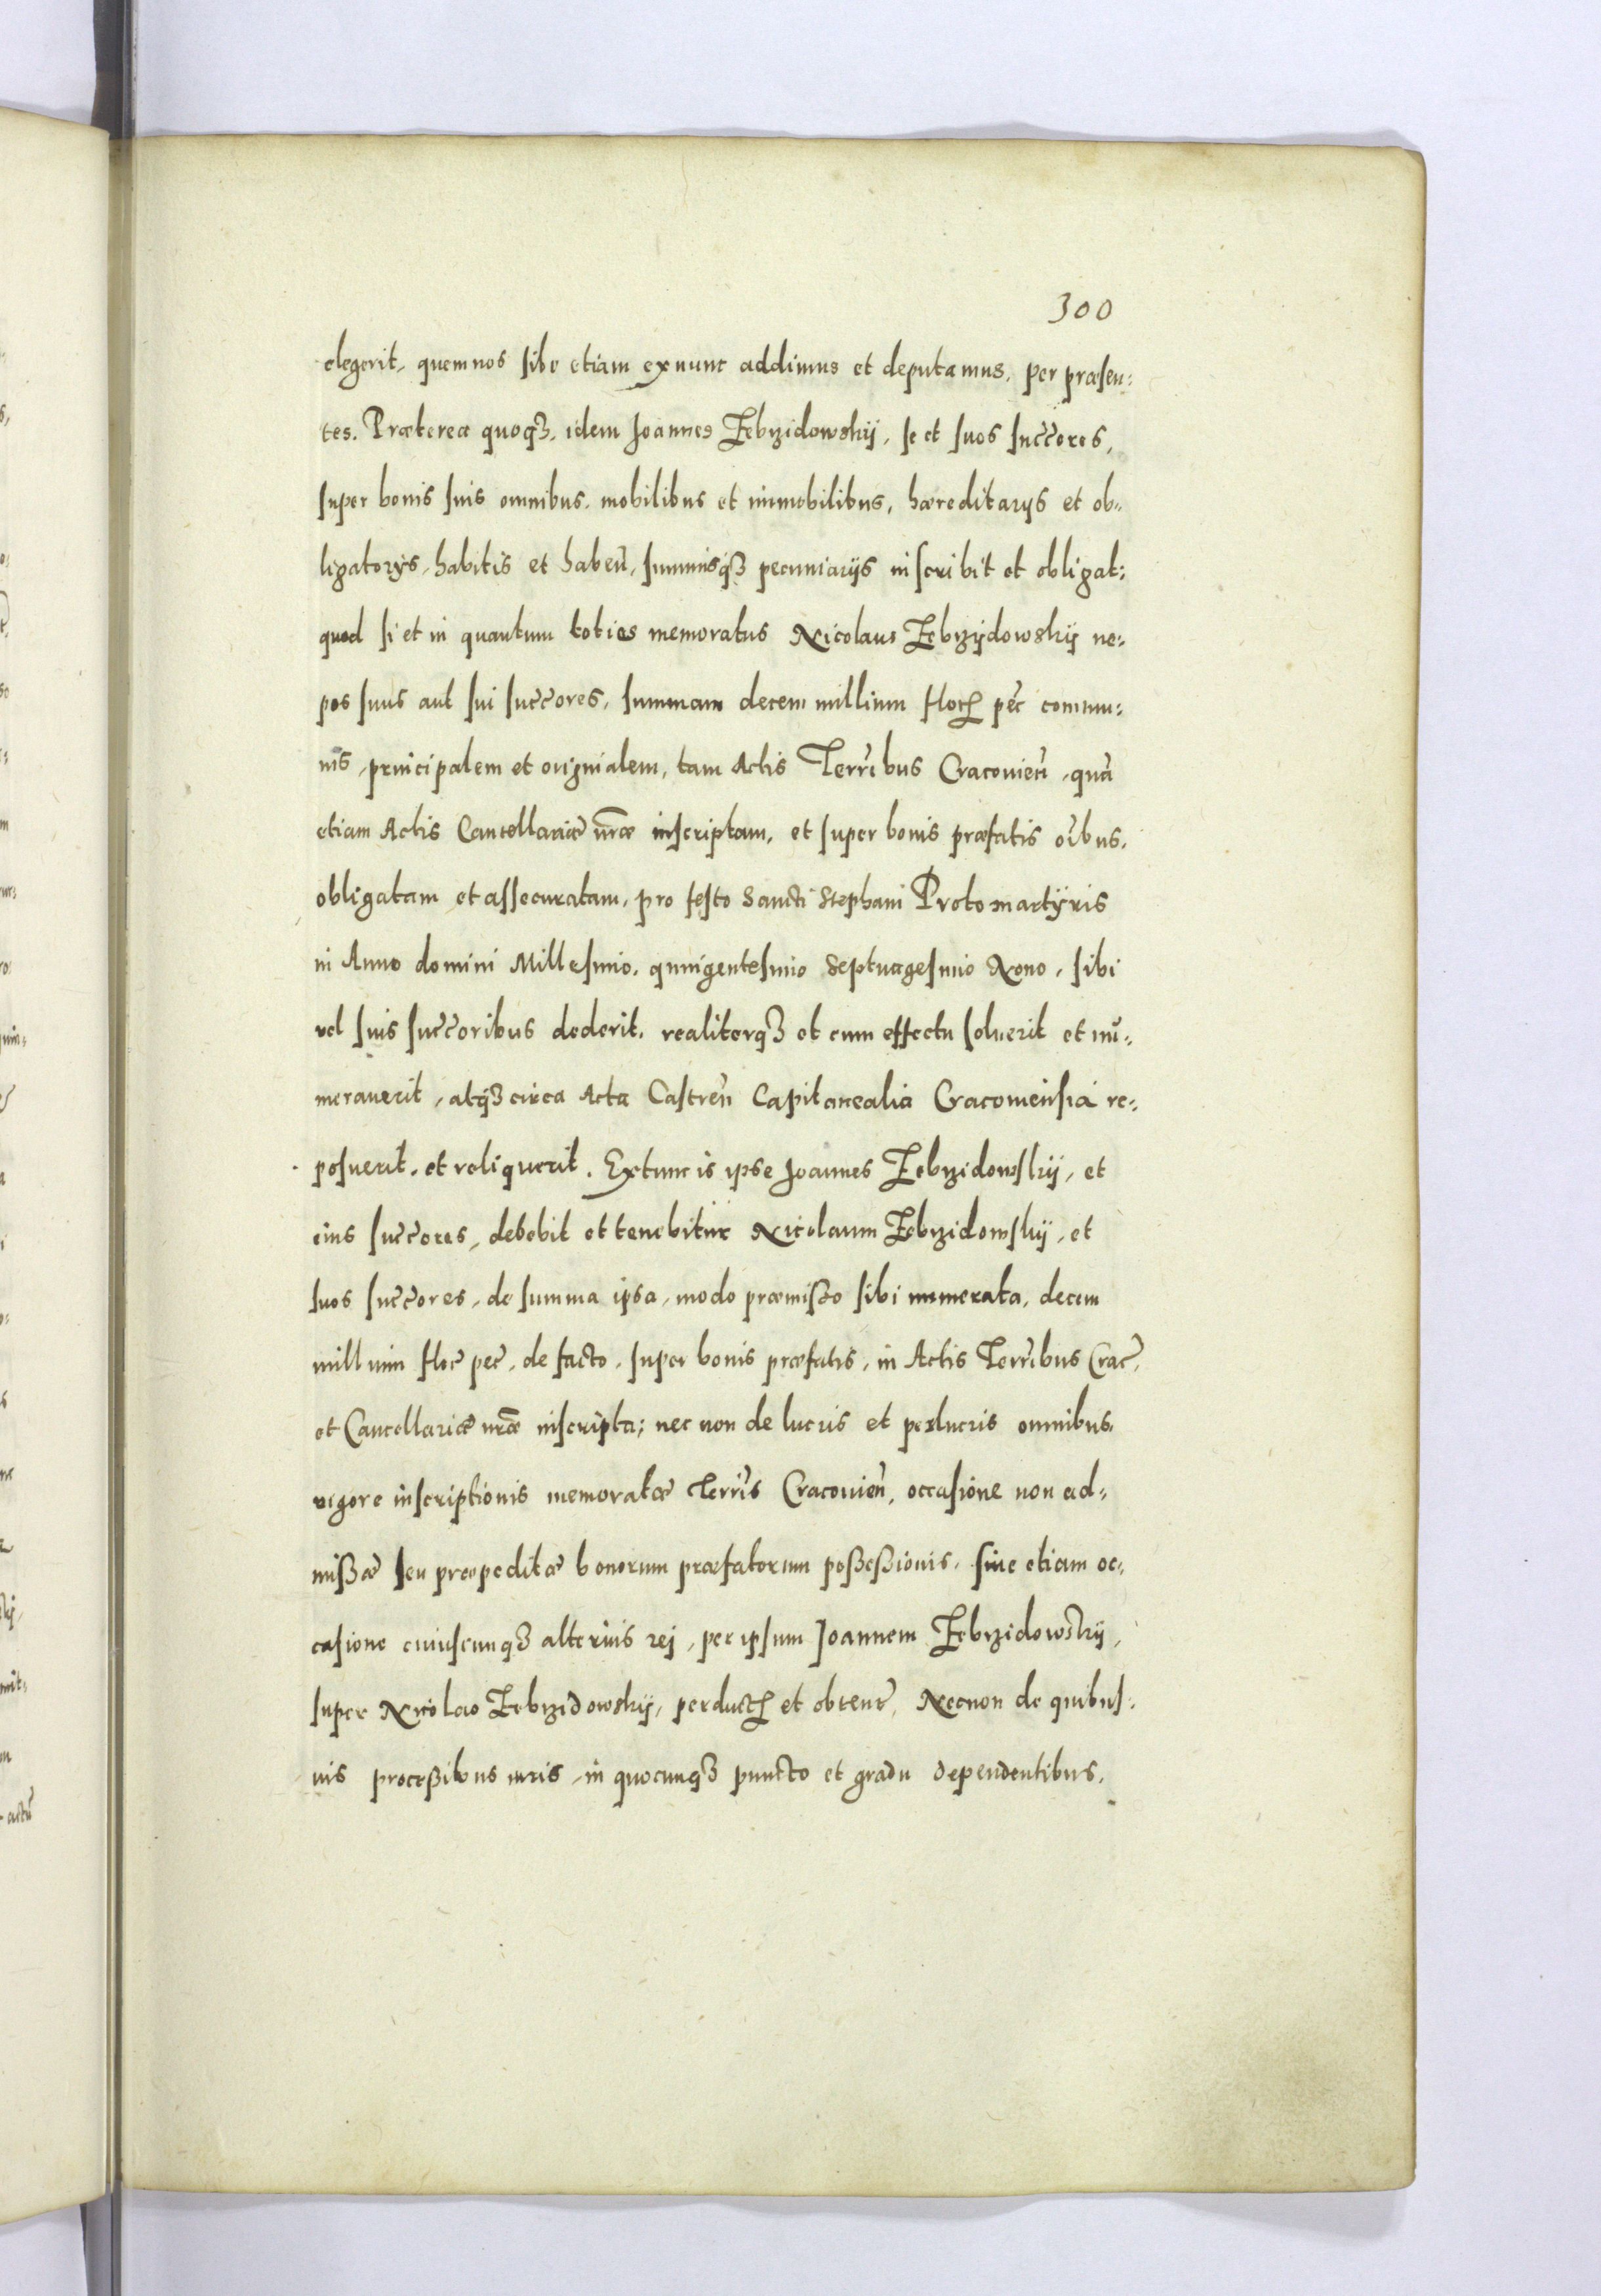 300
elegerit, quem nos sibi etiam exnunc addimus et deputamus, per præsen:
tes. Præterea quoqȝ, idem Joannes Zebrzidowskij, se et suos succ̃ores,
super bonis suis omnibus, mobilibus et immobilibus, hæreditarijs et ob:
ligatorijs, habitis et habeñ, summisqȝ pecuniarijs inscribit et obligat:
quod si et in quantum toties memoratus Nicolaus Zebrzydowskij ne:
pos suus aut sui succ̃ores, summam decem millium floꝝ pec̃ commu:
nis, principalem et originalem, tam Actis Terr̃ibus Cracovieñ, quã
etiam Actis Cancellariæ nr̃æ inscriptam, et super bonis præfatis oĩbus,
obligatam et assecuratam, pro festo Sancti Stephani Protomartyris
in Anno domini Millesimo, quingentesimo Septuagesimo Nono, sibi
vel suis succ̃oribus dederit, realiterqȝ et cum effectu solverit et nũ:
meraverit, atqȝ circa Acta Castreñ Capitanealia Cracoviensia re:
posuerit, et reliquerit. Extunc is ipse Joannes Zebrzidowskij, et
eius succ̃ores, debebit et tenebitur Nicolaum Zebrzidowskij, et
suos succ̃ores, de summa ipsa, modo præmisso sibi numerata, decem
millium floꝛ̃ pec̃, de facto, super bonis præfatis, in Actis Terr̃ibus Crac̃,
et Cancellariæ nr̃æ inscripta; nec non de lucris et perlucris omnibus,
vigore inscriptionis memoratæ Terr̃is Cracovieñ, occasione non ad:
mißæ seu præpeditæ bonorum præfatorum poßeßionis, sive etiam oc:
casione cuiuscunqȝ alterius rej, per ipsum Joannem Zebrzidowskij,
super Nicolao Zebrzidowskij, perductꝝ et obtent̃, Necnon de quibus:
vis proceßibus iuris, in quocunqȝ puncto et gradu dependentibus,